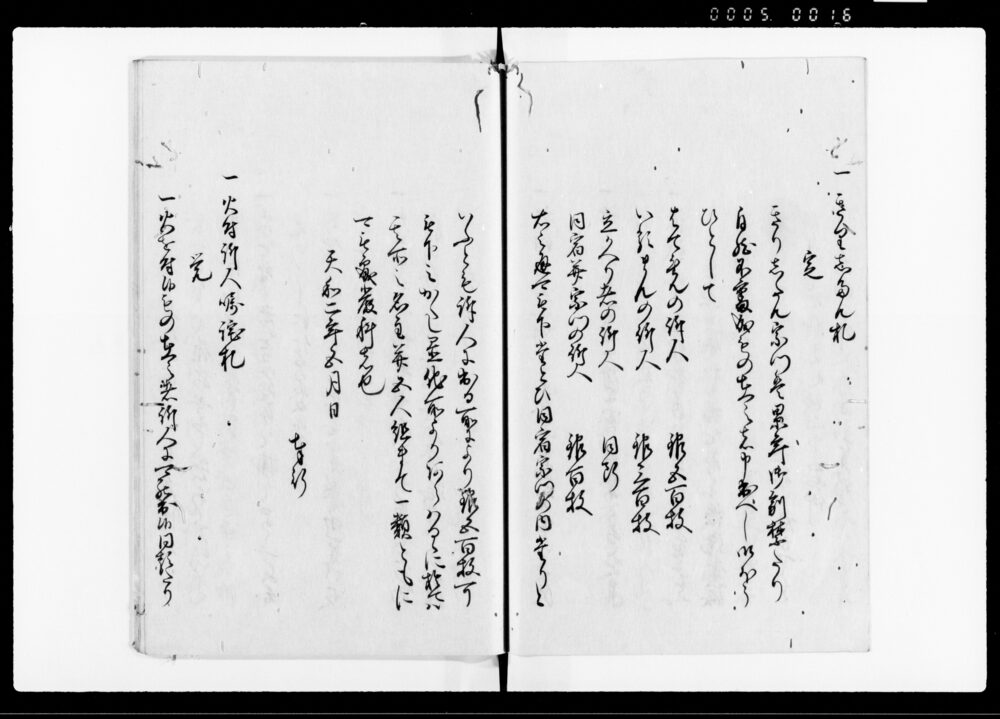 0005 0016
一きりしたん札
定
きりしたん宗門者累年御制禁たり
自然不審成ものあらハ申出へし御ほう
ひとして
はてれんの訴人 銀五百枚
いるまんの訴人 銀三百枚
立かへり者の訴人 同断
同宿并宗門の訴人 銀百枚
右之通可被下之たとひ同宿宗門の内たりと
いふとも訴人に出る品により銀五百枚可
被下之かくし置他所よりあらハるゝに於てハ
其所之名主并五人組まて一類ともに
可被処厳科者也
天和二年五月日
奉行
一火付訴人嘱託札
覚
一火を付候ものあらハ早々訴人に可罷出候同類たり